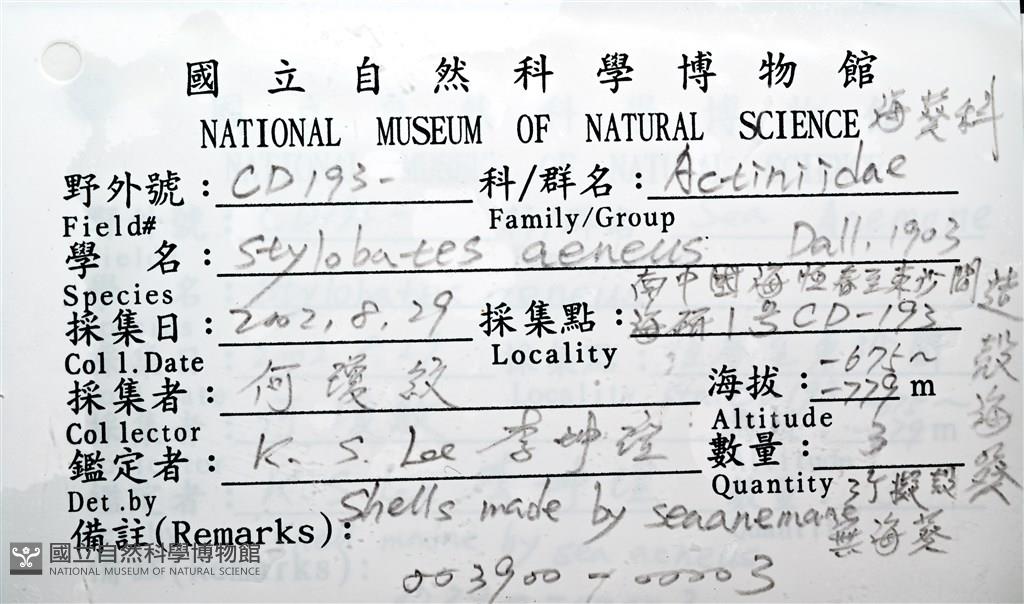 國立自然科學博物館
NATIONAL MUSEUM OF NATURAL SCIENCE 海葵科
野外號：CD193- 科/群名：Actiniidae
Field# Family/Group
學名：Stylobates aeneus Dall, 1903
Species 南中國海恆春至東沙間
採集日：2002, 8, 29 採集點：海研1号CD-193
Coll.Date Locality
造殼海葵
採集者：何瓊紋 海拔：-675~-779 m
Collector Altitude
鑑定者：K. S. Lee 李坤瑄 數量：3
Det.by Quantity 3個擬殼
無海葵
備註(Remarks)：Shells made by seaanemane
003900-00003
國立自然科學博物館
NATIONAL MUSEUM OF NATURAL SCIENCE